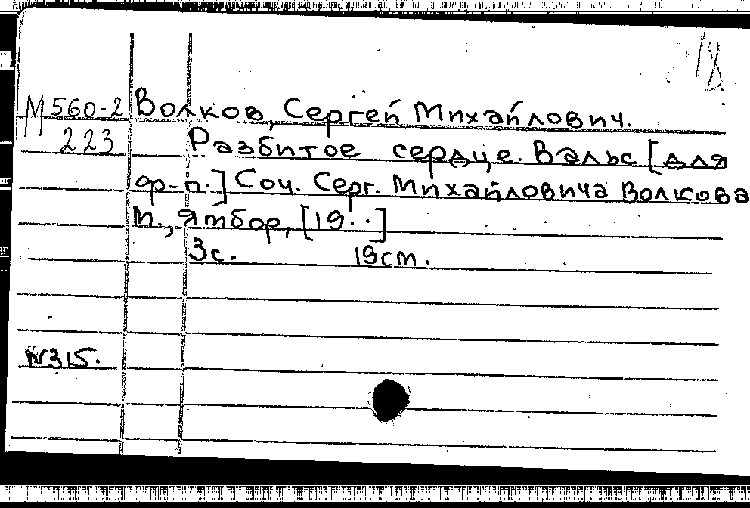 18
М 560-2 Волков, Сергей Михайлович.
223 Разбитое сердце. Вальс [для
ф-п.] Соч. Серг. Михайловича Волкова
П., Ямбор, [19..]
3с. 19см.
№315.